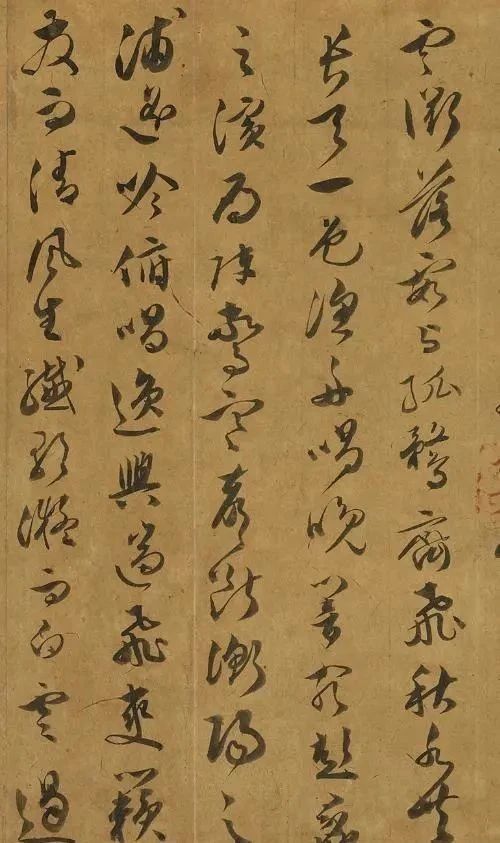 雲衢落霞与孤鶩齊飛秋水共
長天一色漁舟唱晚響窮彭蠡
之濱雁陣驚寒聲斷衡陽之
浦遥吟俯唱逸興遄飛爽籟
發而清風生纖歌凝而白雲遏